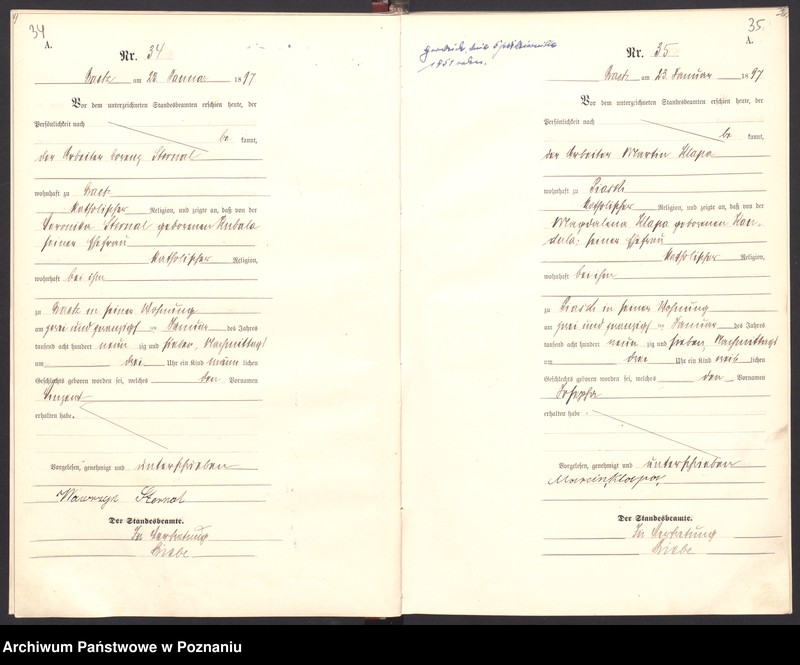 34
A.
Nr. 34
am 23. Januar 1897
Vor dem unterzeichneten Standesbeamten erschien heute, der
Persönlichkeit nach
be kannt,
der Arbeiter Lorenz Sternal
wohnhaft zu
katholischer Religion, und zeigte an, daß von der
Veronika Sternal geborenen Kubala
seiner Ehefrau
katholischer Religion,
wohnhaft bei ihm
zu in seiner Wohnung
am zwei und zwanzigsten Januar des Jahres
tausend acht hundert neun zig und sieben, Nachmittags
um drei Uhr ein Kind männ lichen
Geschlechts geboren worden sei, welches den Vornamen
Vinzent
erhalten habe.
Vorgelesen, genehmigt und unterschrieben
Wawrzyn Sternal
Der Standesbeamte.
In Vertretung
35.
A.
Nr. 35
am 23. Januar 1897
Vor dem unterzeichneten Standesbeamten erschien heute, der
Persönlichkeit nach
be kannt,
der Arbeiter Martin Klapa
wohnhaft zu
katholischer Religion, und zeigte an, daß von der
Magdalena Klapa geborenen Kan-
dula, seiner Ehefrau
katholischer Religion,
wohnhaft bei ihm
zu in seiner Wohnung
am zwei und zwanzigsten Januar des Jahres
tausend acht hundert neun zig und sieben, Nachmittags
um drei Uhr ein Kind weib lichen
Geschlechts geboren worden sei, welches den Vornamen
Josepha
erhalten habe
Vorgelesen, genehmigt und unterschrieben
Marcin Kłapa
Der Standesbeamte.
In Vertretung
Archiwum Państwowe w Poznaniu